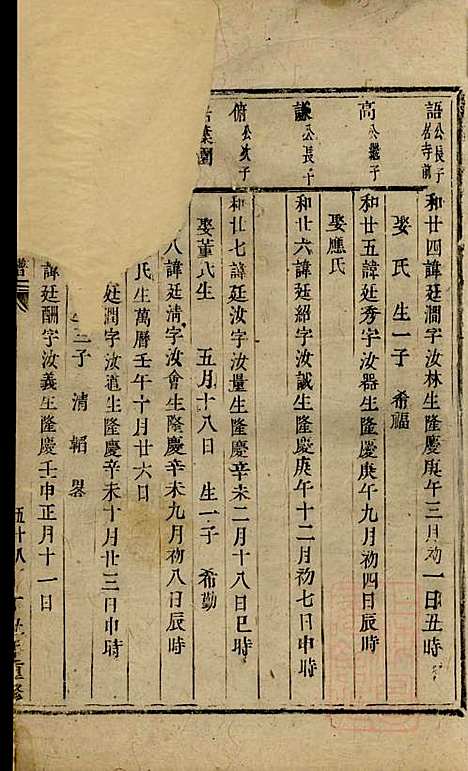 語公長子居寺前
和廿四諱廷澗字汝林生隆慶庚午三月初一日丑時
娶 氏 生一子 希福
高公繼子
和廿五諱廷秀字汝器生隆慶庚午九月初四日辰時
娶應氏
謙公長子
和廿六諱廷紹字汝誠生隆慶庚午十二月初七日申時
備公次子
和廿七諱廷汝字汝量生隆慶辛未二月十八日巳時
娶董氏生 五月十八日 生一子 希勤
八諱廷清字汝會生隆慶辛未九月初八日辰時
氏生萬曆壬午十月廿六日
廷潤字汝道生隆慶辛未十月廿三日申時
子 清
諱廷酬字汝義生隆慶壬申正月十一日
譜
五十八
重修